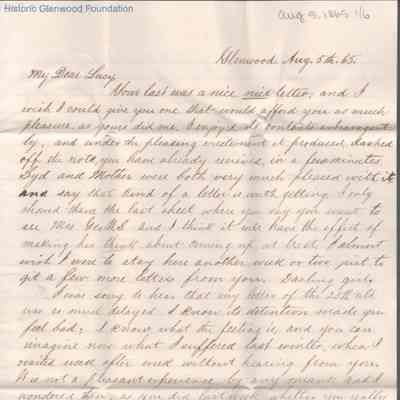 Historic Glenwood Foundation
Aug 5, 1865 1/6
Glenwood Aug. 5th 65.
My Dear Lucy,
Your last was a nice nice letter, and I
wish I could give you one that would afford you as much
pleasure as yours did me. I enjoyed its contents extravagant
ly, and under the pleasing excitement it produced, dashed
off the note, you have already received, in a few minutes.
Syd and Mother were both very much pleased with it
and say that kind of a letter is worth getting. I only
showed them the last sheet where you say you want to
see Mrs and I think it will have the effect of
making her think about coming up at least. I almost
wish I were to stay here another week or two just to
get a few more letters from you. Darling girl.
I was sorry to hear that my letter of the 25th ult
was so much delayed. I know its detention made you
feel bad; I know what the feeling is, and you can
imagine now what I suffered last winter, when I
waited week after week without hearing from you.
It is not a pleasant experience by any means and I
wondered then, as you did last week whether you really